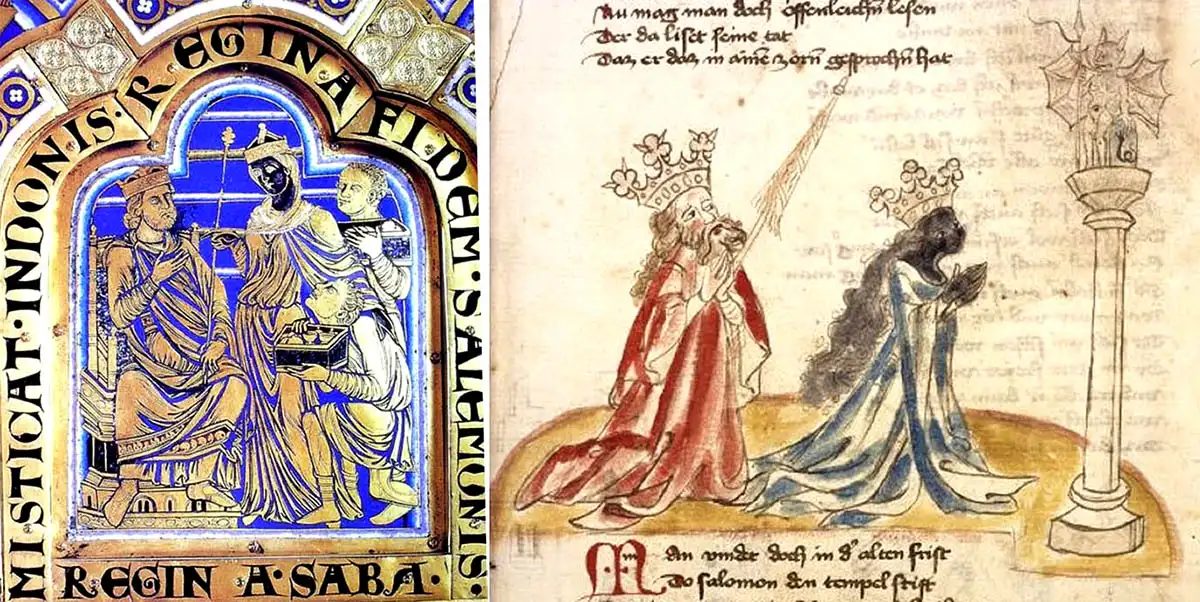 MISTICAT·INDONIS·REGINA FIDEM·SALEMONIS·
REGIN A·SABA·
Nu mag man doch offenleichn lesen
Der da liset seine tat
Daz er daz in ainē zorn gesprochn hat
Man vindt doch in d' alten frist
Do salomon den tempel stift